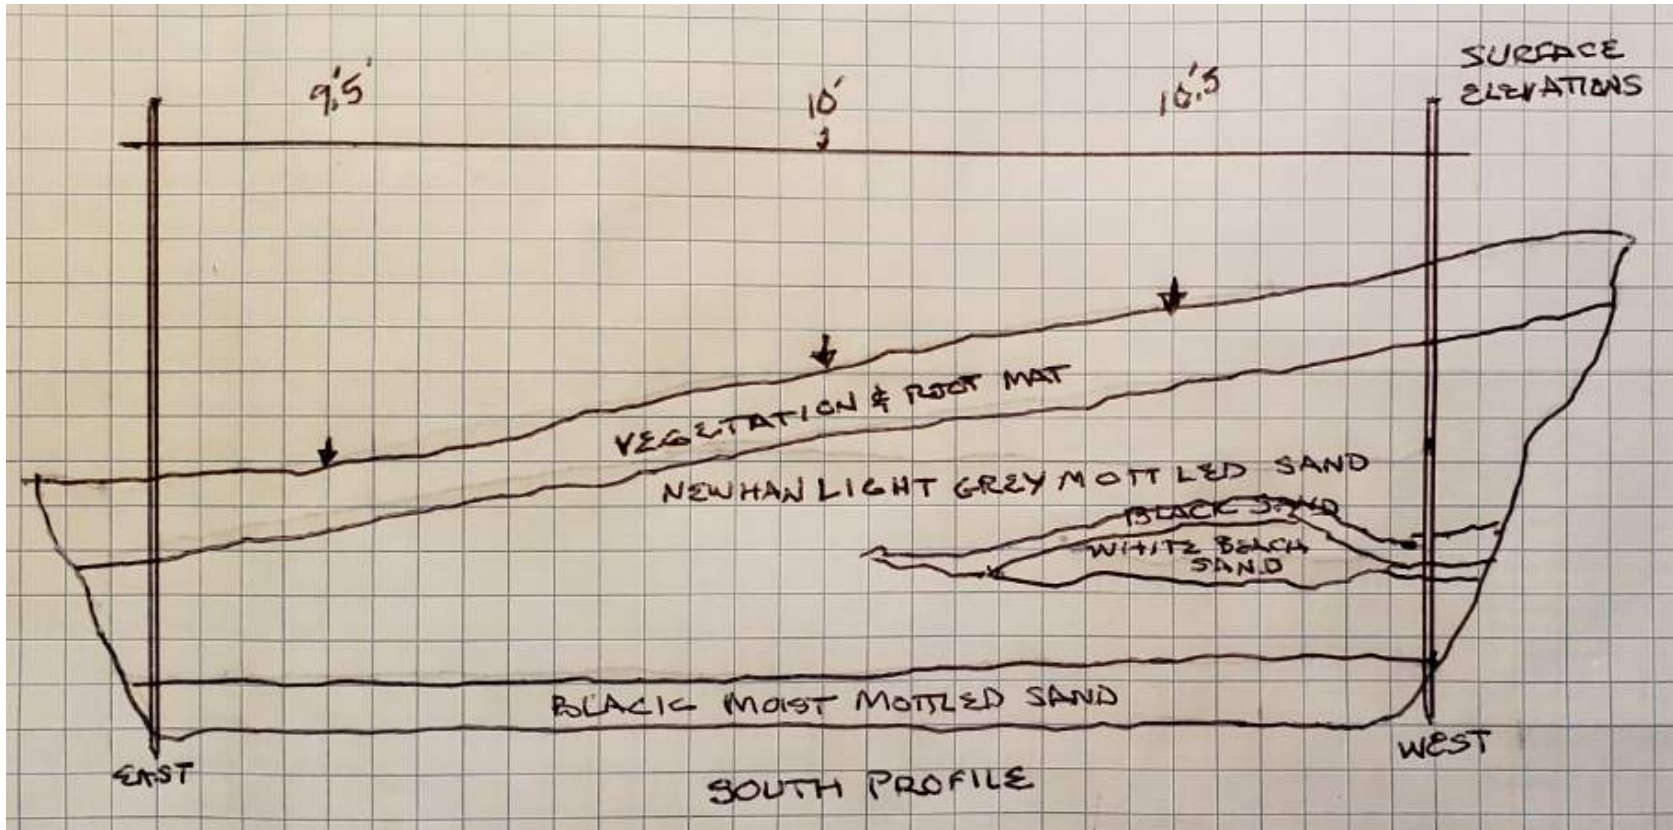 SURFACE
ELEVATIONS
9.5'
10'
10.5
VEGETATION & ROOT MAT
NEWHAN LIGHT GREY MOTTLED SAND
BLACK SAND
WHITE BEACH
SAND
BLACK MOIST MOTTLED SAND
EAST
WEST
SOUTH PROFILE